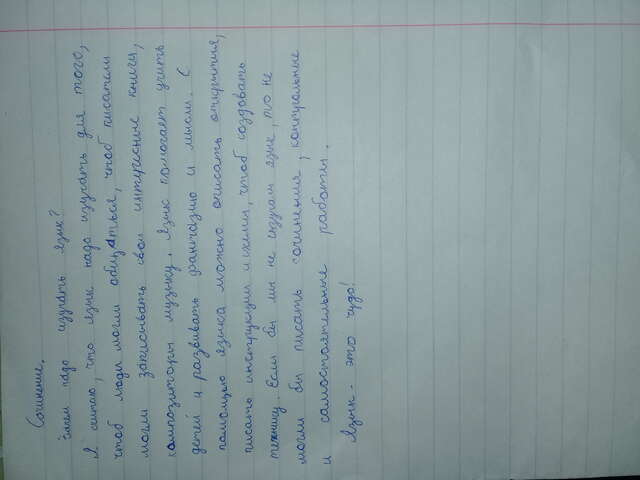 Сочинение.
Зачем надо изучать язык?
Я считаю, что язык надо изучать для того,
чтоб люди могли общаться, чтоб писатели
могли записывать свои интересные книги,
композиторы музыку. Язык помогает учить
детей и развивать фантазию и мысли. С
помощью языка можно описать открытия,
писать инструкции и схемы, чтоб создавать
технику. Если бы мы не изучали язык, то не
могли бы писать сочинения, контрольные
и самостоятельные работы.
Язык - это чудо!